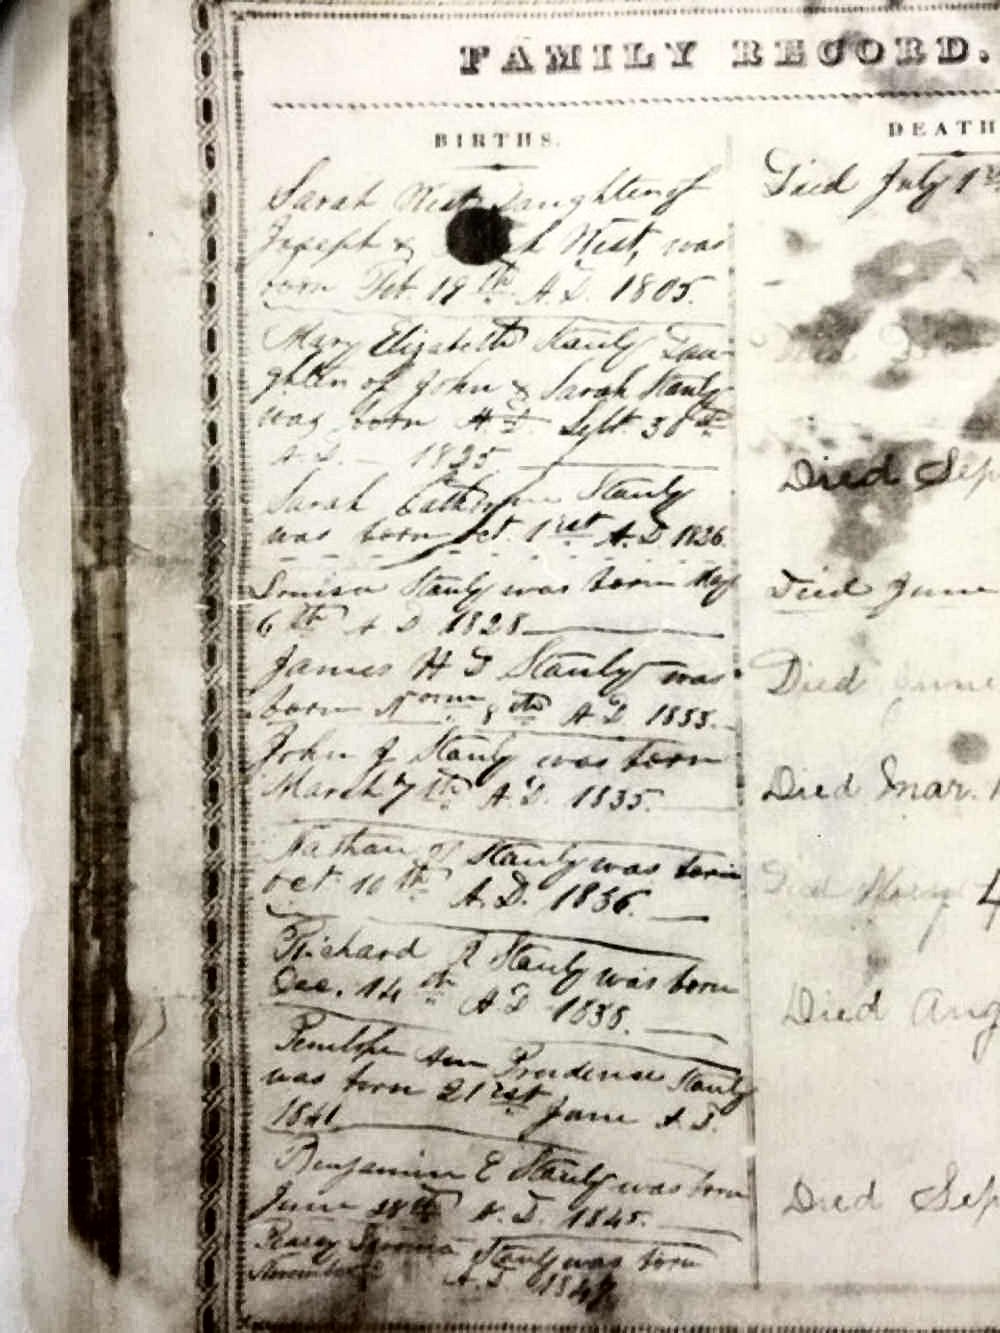 FAMILY RECORD.
BIRTHS.
Sarah West Daughter of
Joseph & h West, was
born Feb. 19th A.D. 1805.
Mary Elizabeth Stanly Dau-
ghter of John & Sarah Stanly
was born A D. Sept. 30th
A.D. — 1825
Sarah Catherine Stanly
was born oct. 1rst A.D. 1826.
Louisa Stanly was born May
6th A.D. 1828
James H Stanly was
born 8th A D
John J Stanly was born
March 7th A.D. 1835.
Nathan Stanly was born
oct 10th A.D. 1836.
Richard Stanly was born
Dec. 14th A D 1838.
Penelope Ann Prudence Stanly
was born 21rst June A.D.
1841
Benjamin E Stanly was born
June 28th A.D. 1845.
Stanly was born
November A.D. 1847
DEATH
Died July 1st
Died Sep
Died June
Died June
Died Mar. 1
Died May 4
Died Aug
Died Sep